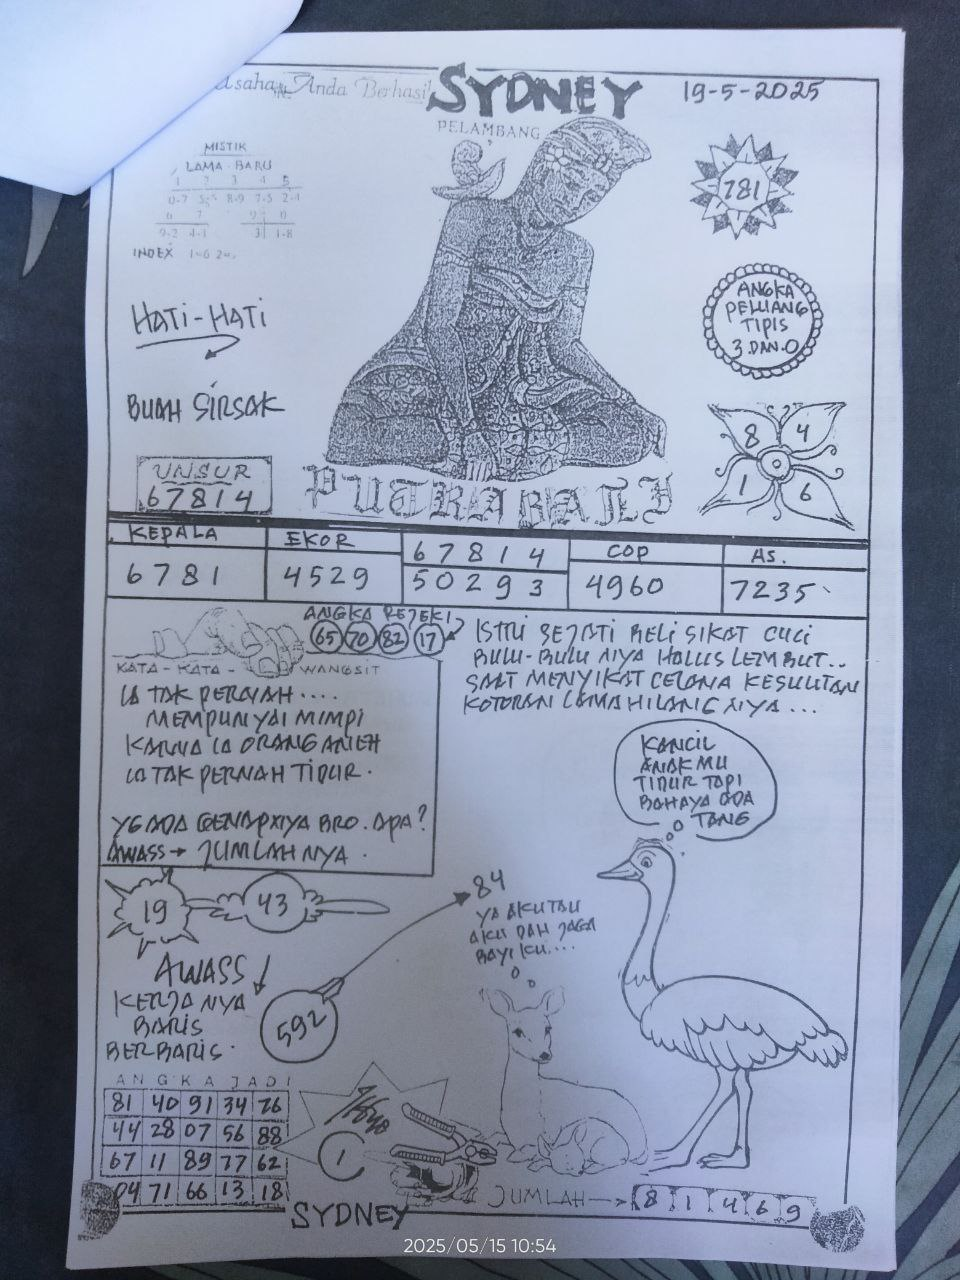 Usaha Anda Berhasil
SYDNEY
19-5-2025
PELAMBANG
MISTIK
LAMA - BARU
1 2 3 4 5
0-7 8-9 7-5
6 7 9 0
9-2 4-1 1-8
INDEX 1-6
781
HATI-HATI
ANGKA
PELUANG
TIPIS
3 DAN 0
BUAH SIRSAK
8 4
1 6
UNSUR
67814
PUTRA BALI
KEPALA EKOR 67814 COP AS.
6781 4529 50293 4960 7235
ANGKA REJEKI
65 70 82 17
KATA - KATA - WANGSIT
IA TAK PERNAH ....
MEMPUNYAI MIMPI
KARNA IA ORANG ANEH
IA TAK PERNAH TIDUR.
YG ADA GENAPNYA BRO. APA?
AWASS → JUMLAH NYA.
ISTRI SEJATI BELI SIKAT CUCI
BULU-BULU NYA HALUS LEMBUT..
SAAT MENYIKAT CELANA KESULITAN
KOTORAN LAMA HILANG NYA ...
KANCIL
ANAK MU
TIDUR TAPI
BAHAYA ADA
TANG
19 43
84
YA AKU TAU
AKU DAH JAGA
BAYI KU....
AWASS
KERJA NYA
BARIS
BERBARIS.
592
ANGKA JADI
81 40 91 34 26
44 28 07 56 88
67 11 89 77 62
04 71 66 13 18
1
JUMLAH → 8 1 4 6 9
SYDNEY
2025/05/15 10:54